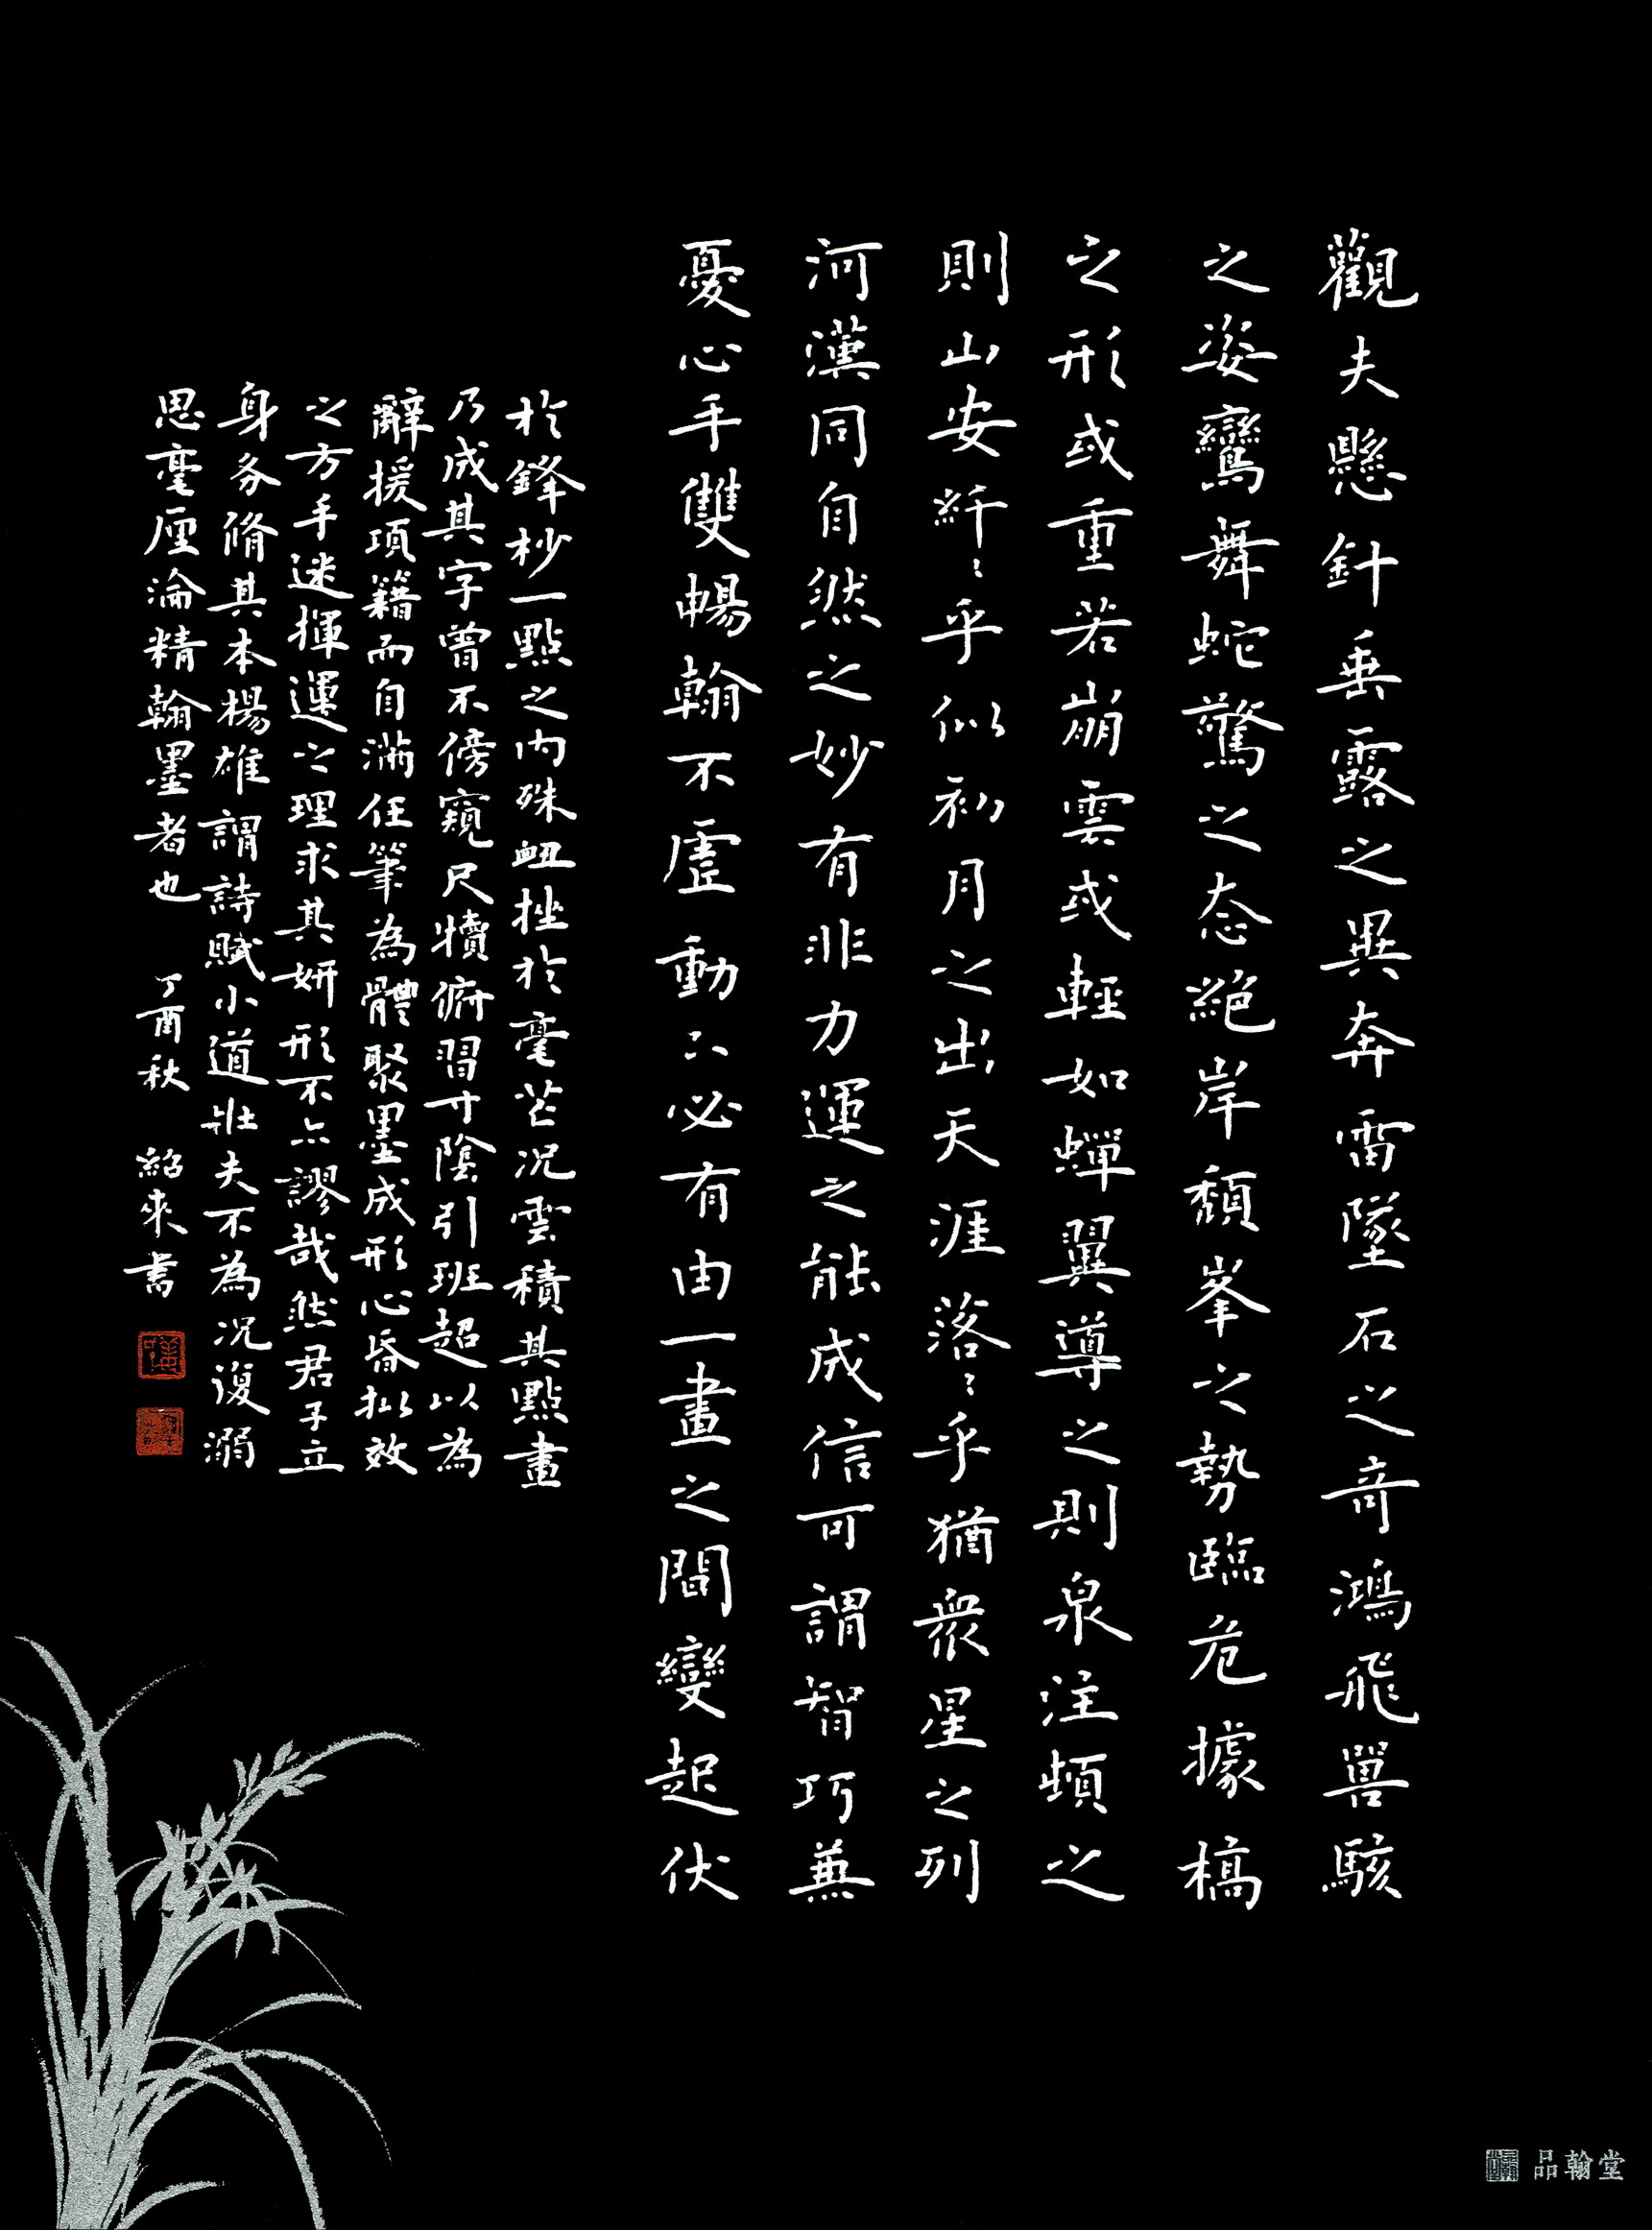 觀夫懸針垂露之異奔雷墜石之奇鴻飛獸駭
之姿鸞舞蛇驚之态絕岸頹峯之勢臨危據槁
之形或重若崩雲或輕如蟬翼導之則泉注頓之
則山安纤〻乎似初月之出天涯落〻乎猶衆星之列
河漢同自然之妙有非力運之能成信可謂智巧兼
憂心手雙暢翰不虛動下必有由一畫之間變起伏
於鋒杪一點之內殊衄挫於毫芒况雲積其點畫
乃成其字曾不傍窺尺犢俯習寸陰引班超以為
辭援項籍而自滿任筆為體聚墨成形心昏擬效
之方手迷揮運之理求其妍形不亦謬哉然君子立
身务脩其本楊雄謂詩賦小道壯夫不為况復溺
思毫厘淪精翰墨者也 丁酉秋 紹來書
品翰堂